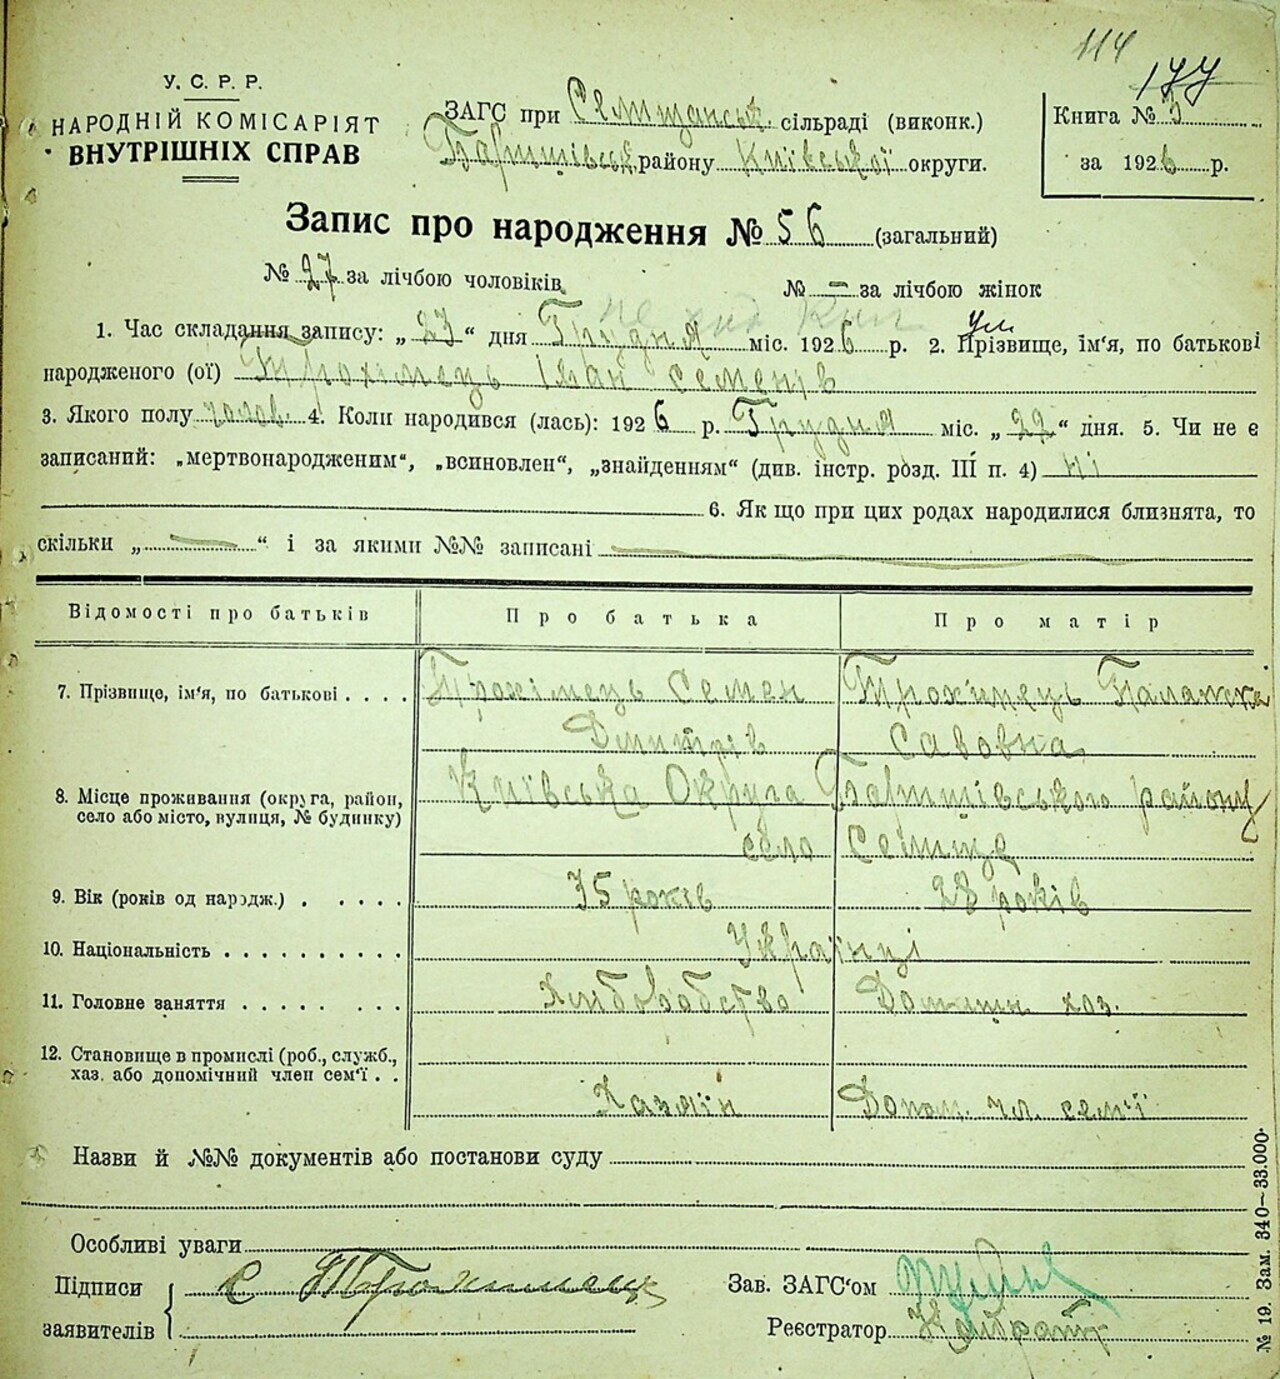 114
177
У. С. Р. Р.
НАРОДНІЙ КОМІСАРІЯТ
ВНУТРІШНІХ СПРАВ
ЗАГС при Семпщанськ. сільраді (виконк.)
району Київської округи.
Книга № 3
за 1926 р.
Запис про народження № 56 (загальний)
№ 27 за лічбою чоловіків
№ — за лічбою жінок
1. Час складання запису: „23“ дня Грудня міс. 1926 р. 2. Прізвище, ім‘я, по батькові
народженого (ої) Трохимець Іван Семенів
3. Якого полу чолов. 4. Коли народився (лась): 1926 р. Грудня міс. „22“ дня. 5. Чи не є
записаний: „мертвонародженим“, „всиновлен“, „знайденням“ (див. інстр. розд. III п. 4) ні
6. Як що при цих родах народилися близнята, то
скільки „ — “ і за якими №№ записані —
Відомості про батьків Про батька Про матір
7. Прізвище, ім‘я, по батькові . . . . Трохімець Семен Трохимець Палажка
Дмитрів Савовна
8. Місце проживання (округа, район, Київська Округа району
село або місто, вулиця, № будинку) село
9. Вік (років од народж.) . . . . . 35 років 28 років
10. Національність . . . . . . . . . . Українці
11. Головне заняття . . . . . . . . Хліборобство Домашн. хоз.
12. Становище в промислі (роб., служб.,
хаз. або допомічний член сем‘ї . . Хазяїн Допом. чл. сем‘ї
Назви й №№ документів або постанови суду
Особливі уваги
Підписи С Трохимец
заявителів
Зав. ЗАГС‘ом
Реєстратор
№ 19. Зам. 340—33.000.